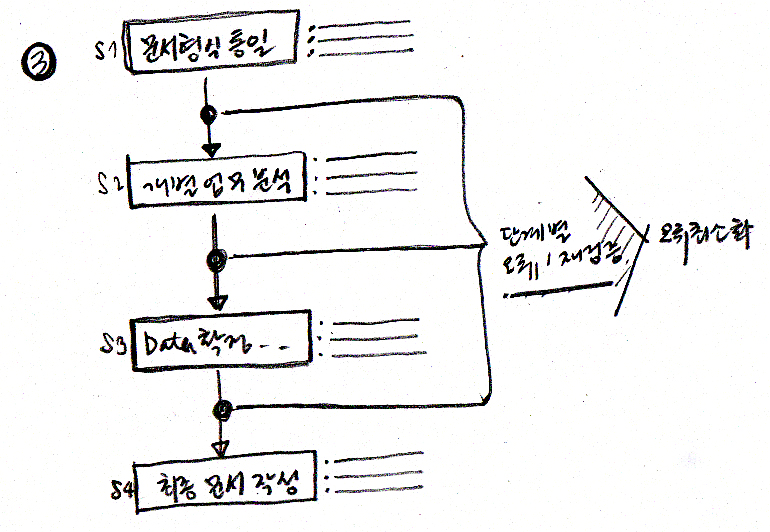 ③
S1 문서형식 통일
S2 개별 업무 분석
S3 Data 확정 . . .
S4 최종 문서 작성
단계별
오류 / 재검증
오류최소화